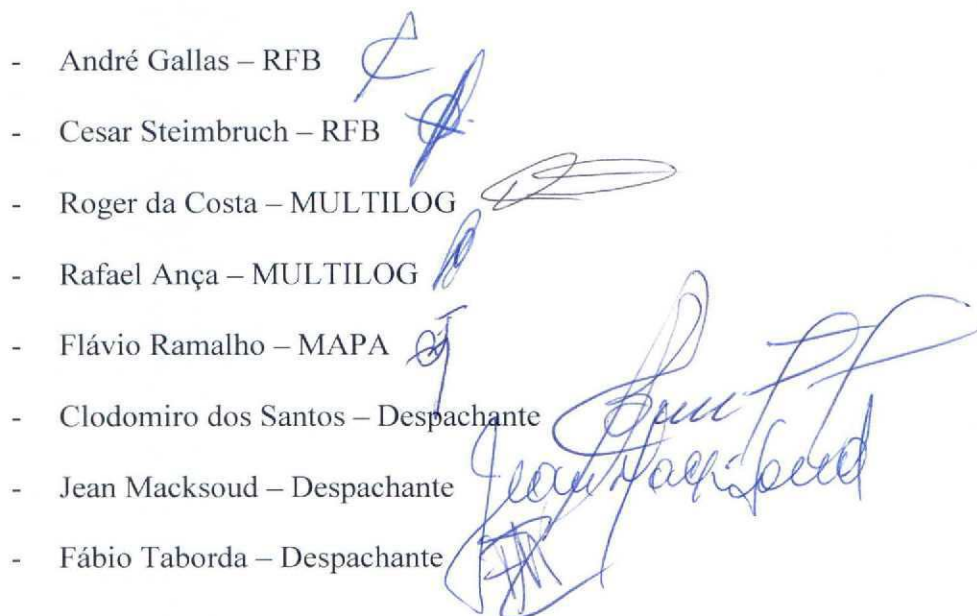 - André Gallas – RFB
- Cesar Steimbruch – RFB
- Roger da Costa – MULTILOG
- Rafael Ança – MULTILOG
- Flávio Ramalho – MAPA
- Clodomiro dos Santos – Despachante
- Jean Macksoud – Despachante Jean Macksoud
- Fábio Taborda – Despachante